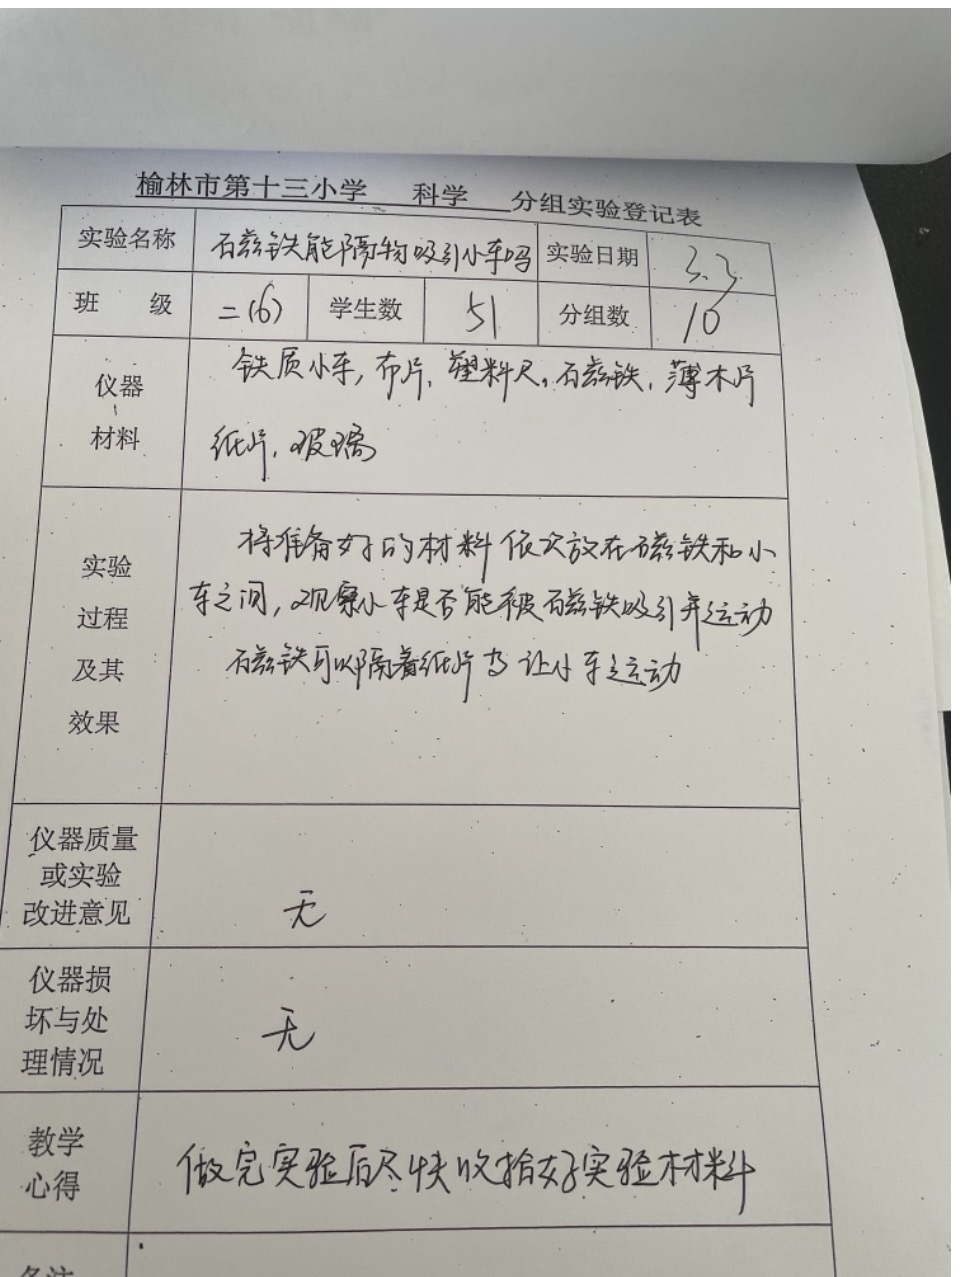 榆林市第十三小学 科学 分组实验登记表
实验名称 磁铁能隔物吸引小车吗 实验日期 3.3
班 级 二(6) 学生数 51 分组数 10
仪器
材料
铁质小车,布片,塑料尺,磁铁,薄木片
纸片,玻璃
实验
过程
及其
效果
将准备好的材料依次放在磁铁和小
车之间,观察小车是否能被磁铁吸引并运动
磁铁可以隔着纸片 让小车运动
仪器质量
或实验
改进意见
无
仪器损
坏与处
理情况
无
教学
心得
做完实验后尽快收拾好实验材料
备注